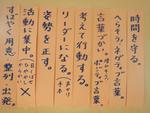 時間を守る。
へらそう、ネガティブ言葉。
言葉づかい。
ポジティブ言葉。
考えて行動する。
リーダーになる。
姿勢を正す。
活動に集中
すばやく用意、整列、出発。